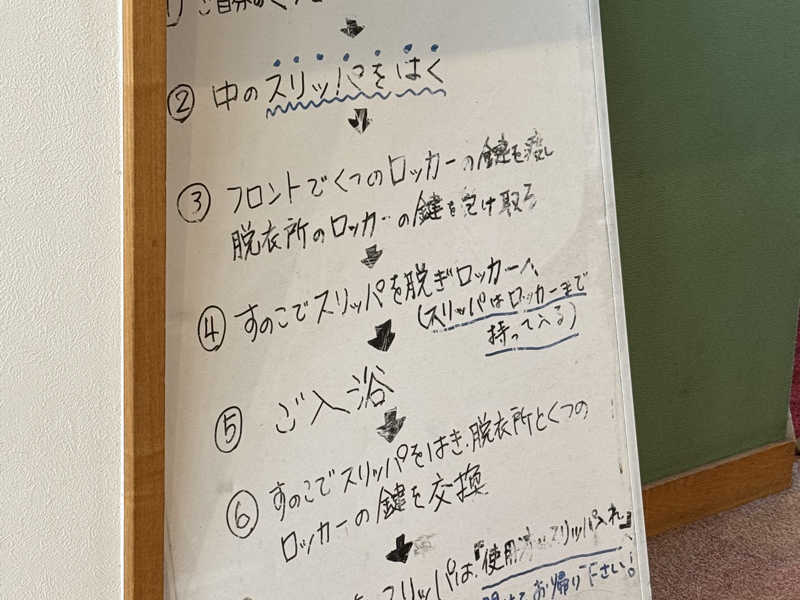 ① ご自分のくつ
② 中のスリッパをはく
③ フロントでくつのロッカーの鍵を渡し
脱衣所のロッカーの鍵を受け取る
④ すのこでスリッパを脱ぎロッカーへ
(スリッパはロッカーまで
持って入る)
⑤ ご入浴
⑥ すのこでスリッパをはき、脱衣所とくつの
ロッカーの鍵を交換
スリッパは、『使用済みスリッパ入れ』
お帰り下さい!